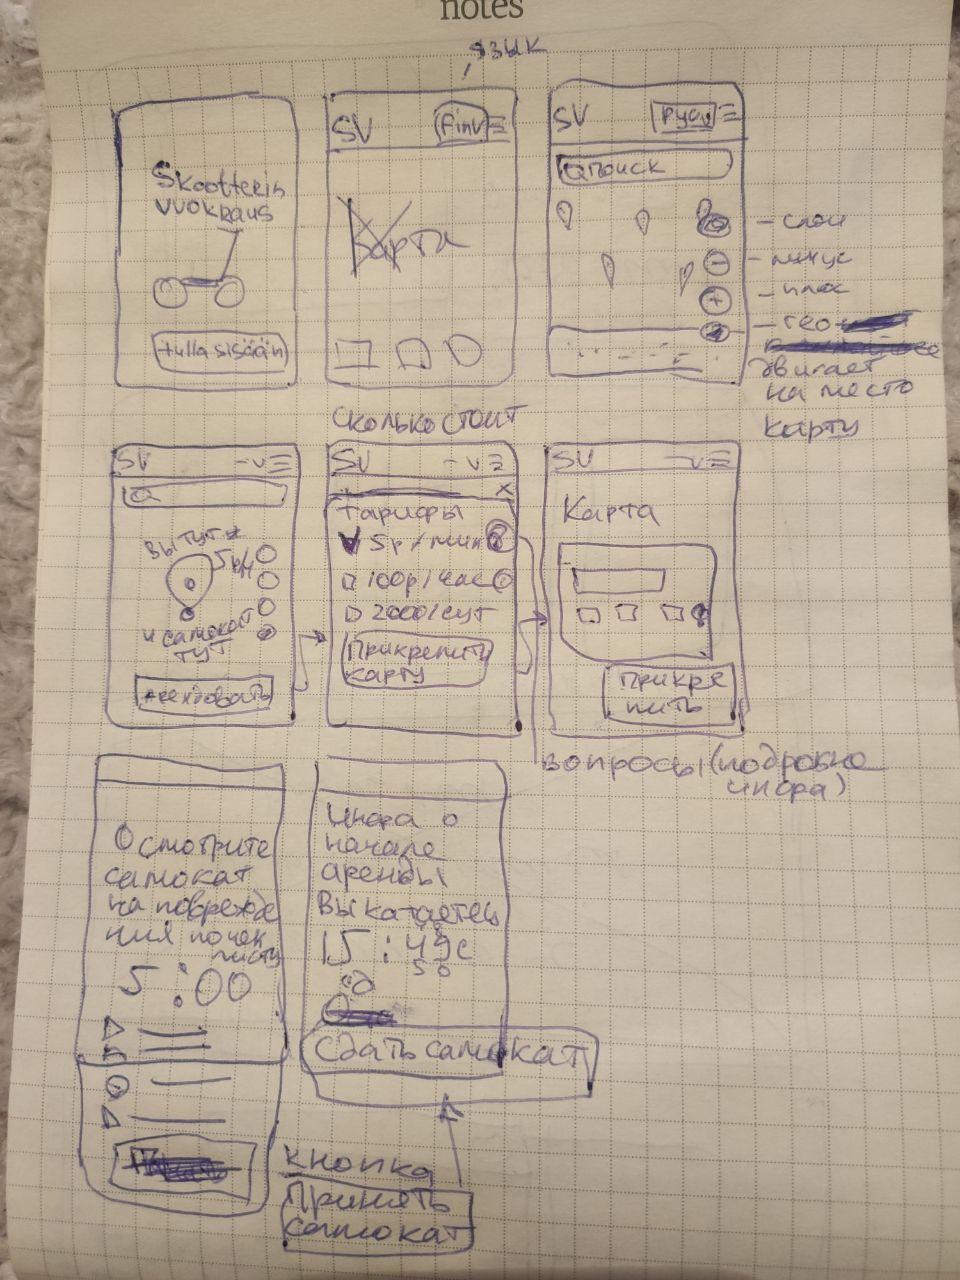 notes
язык
Skootterin
vuokraus
tulla sisään
SV
Fin v
Карта
SV
Рус v
поиск
- слои
- минус
- плюс
- гео
двигает
на место
карту
сколько стоит
SV - v
вы тут и
5р/м
и самокат
тут
арендовать
SV - v
x
тарифы
5р/мин
100р/час
2000/сут
Прикрепить
карту
SV v
Карта
Прикре
пить
вопросы (подробно
инфа)
Осмотрите
самокат
на поврежде
ния по чек
листу
5:00
Инфа о
начале
аренды
Вы катаетесь
15:49с
50
Сдать самокат
кнопка
Принять
самокат